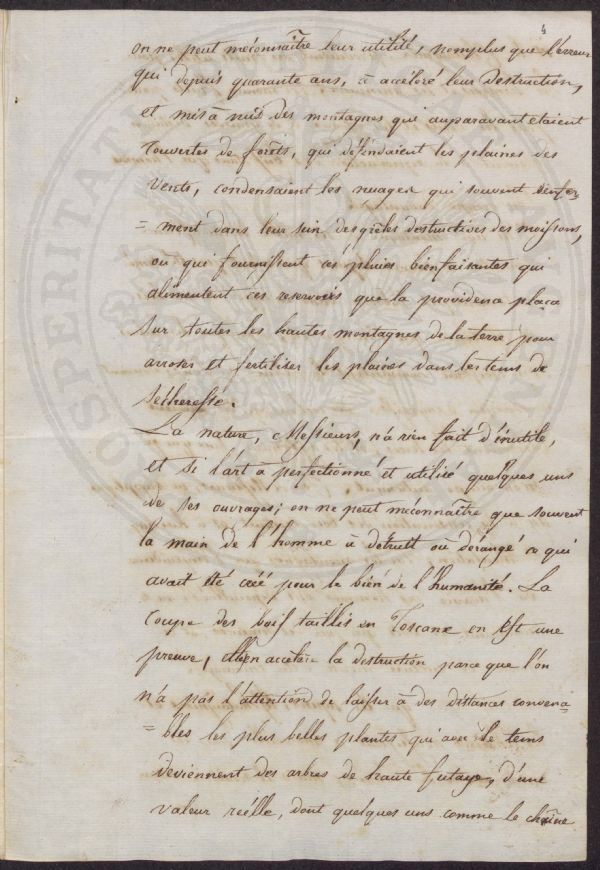 4
on ne peut méconnaître leur utilité, nomplus que l'erreur
qui depuis quarante ans, à accéléré leur destruction,
et mis à nud des montagnes qui auparavant etaient
couvertes de forêts, qui défendaient les plaines des
vents, condensaient les nuages qui souvent renfer
= ment dans leur sein des grêles destructives des moissons,
ou qui fournissent ces pluies bienfaisantes qui
alimentent ces reservoirs que la providence plaça
sur toutes les hautes montagnes de la terre pour
arroser et fertiliser les plaines dans les tems de
secheresse.
La nature, Messieurs, n'a rien fait d'inutile,
et si l'art a perfectionné et utilisé quelques uns
de ses ouvrages; on ne peut méconnaître que souvent
la main de l'homme à détruit ou dérangé ce qui
avait été créé pour le bien de l'humanité. La
Coupe des bois taillis en Toscane en est une
preuve, elle en accelère la destruction parce que l'on
n'a pas l'attention de laisser à des distances convena=
= bles les plus belles plantes qui avec le tems
deviennent des arbres de haute futaye, d'une
valeur réelle, dont quelques uns comme le chêne